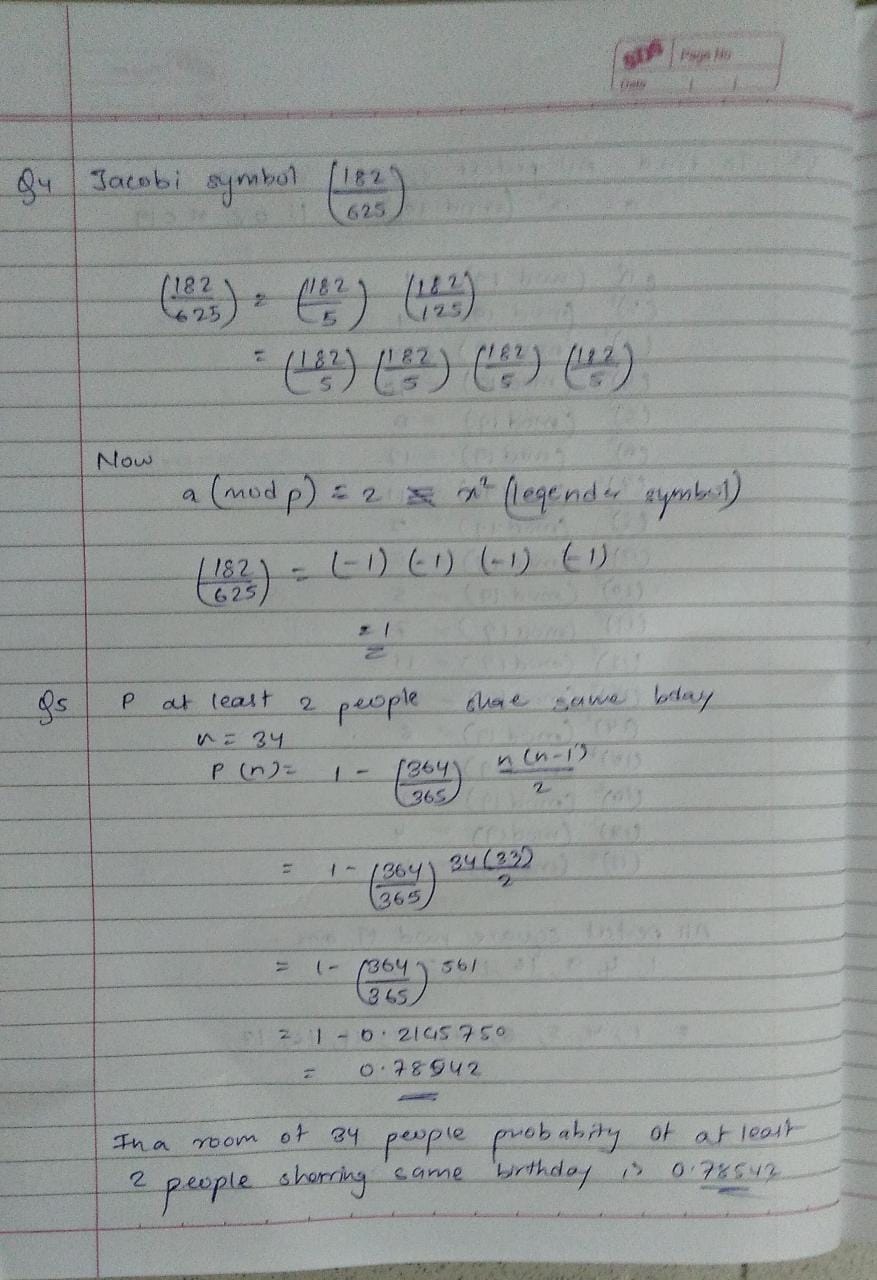 Page No
Date
Q4 Jacobi symbol (182/625)
(182/625) = (182/5) (182/125)
= (182/5) (182/5) (182/5) (182/5)
Now
a (mod p) = 2 x² (legender symbol)
(182/625) = (-1) (-1) (-1) (-1)
= 1
Q5 P at least 2 people share same bday
n = 34
P(n) = 1 - (364/365) n(n-1)/2
= 1 - (364/365) 34(33)/2
= 1 - (364/365) 561
= 1 - 0.2145750
= 0.78542
In a room of 34 people probabity of at least
2 people sharring same birthday is 0.78542